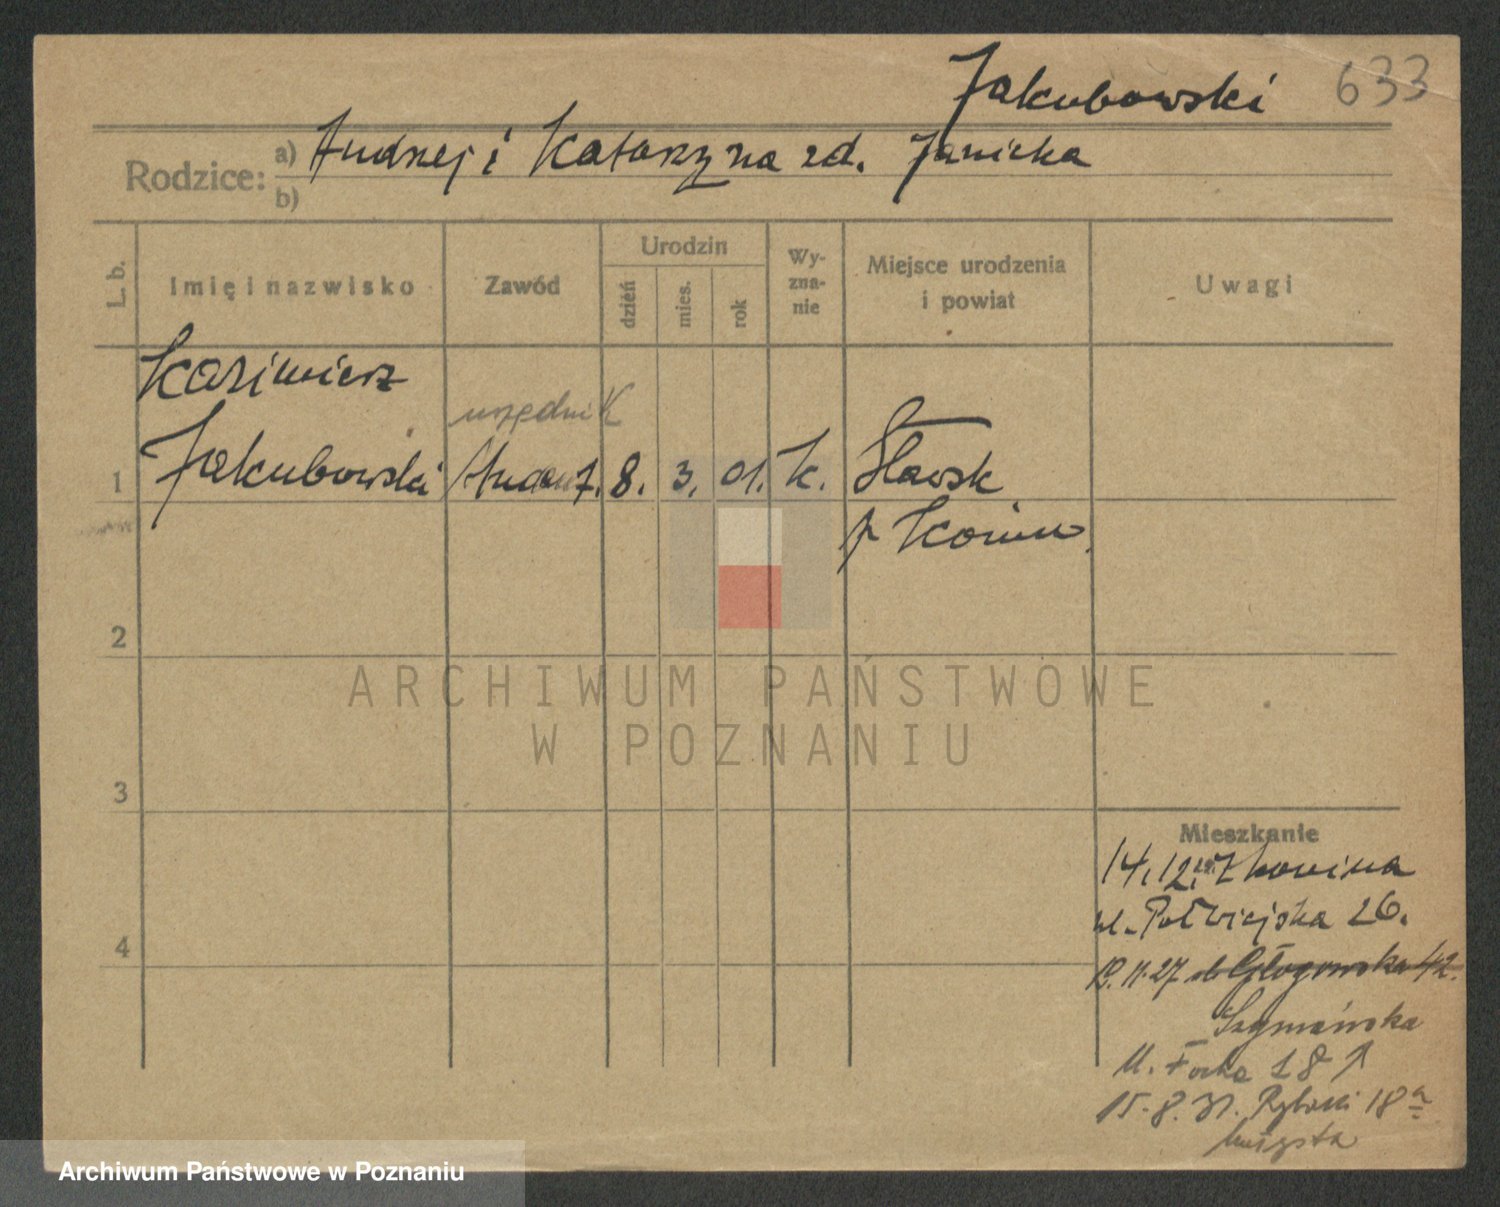 Jakubowski 633
Rodzice: a) Andrzej i Katarzyna zd. Janicka
b)
L. b. Imię i nazwisko Zawód Urodzin dzień mies. rok Wy-zna-nie Miejsce urodzenia i powiat Uwagi
Kazimierz
urzędnik
1 Jakubowski student. 8. 3. 01. k. Sławsk
p Konin.
2
ARCHIWUM PAŃSTWOWE
W POZNANIU
3
Mieszkanie
14.12. z Konina
ul. Półwiejska 26.
4
11.27 Głogowska 42.
Szymańska
Focha 18
15.8.31. Rybaki 18a
Archiwum Państwowe w Poznaniu